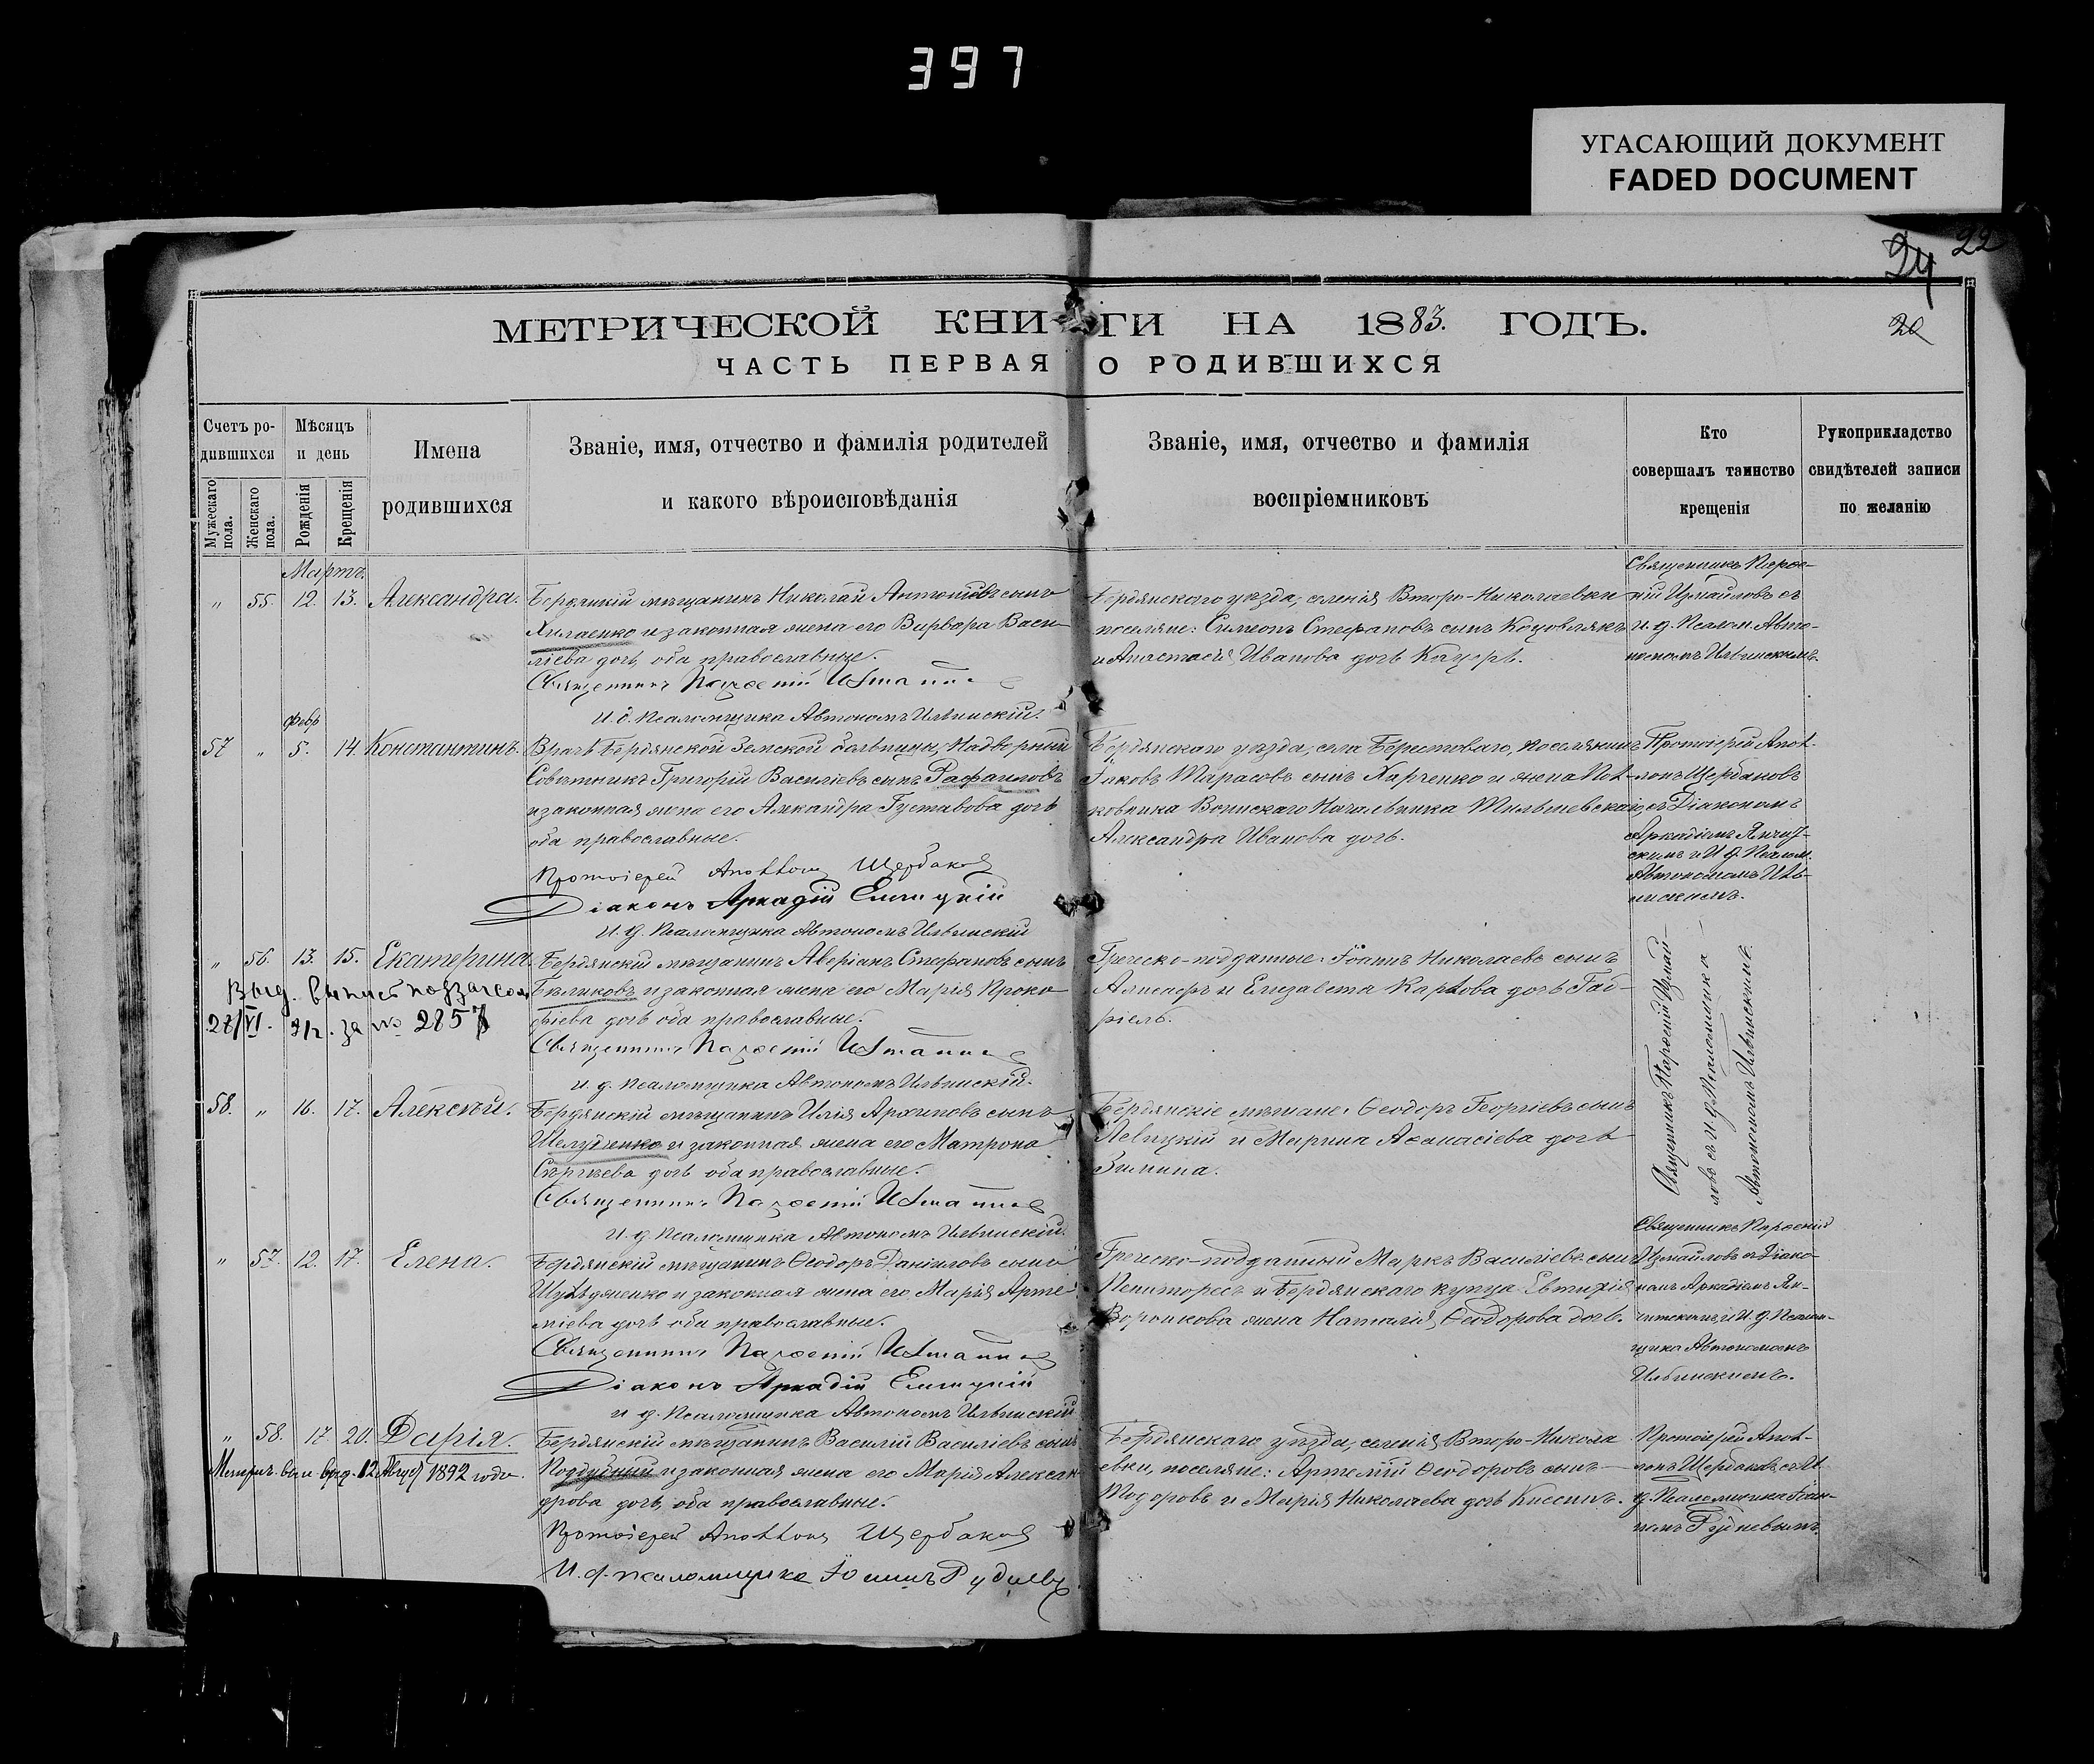 397
УГАСАЮЩИЙ ДОКУМЕНТ
FADED DOCUMENT
22
24
20
МЕТРИЧЕСКОЙ КНИГИ НА 1883. ГОДЪ.
ЧАСТЬ ПЕРВАЯ О РОДИВШИХСЯ
Счетъ ро-
дившихся
Мужескаго пола.
Женскаго пола.
Мѣсяцъ
и день
Рожденія
Крещенія
Имена
родившихся
Званіе, имя, отчество и фамилія родителей
и какого вѣроисповѣданія
Званіе, имя, отчество и фамилія
воспріемниковъ
Кто
совершалъ таинство
крещенія
Рукоприкладство
свидѣтелей записи
по желанію
Мартъ
„ 55. 12. 13. Александра.
Бердянскій мѣщанинъ Николай Антоновъ сынъ
и законная жена его Варвара Васи-
ліева дочь, оба православные.
Священникъ Парѳеній Измаиловъ
И. д. Псаломщика Автономъ Ильинскій.
Бердянскаго уѣзда, селенія Второ-Николаевки
поселяне: Симеонъ Стефановъ сынъ
и Анастасія Иванова дочь
Священникъ Парѳе-
ній Измаиловъ съ
и. д. Псалом. Авто-
номомъ Ильинскимъ.
Февр
57 „ 5. 14. Константинъ.
Врачъ Бердянской Земской больницы, Надворный
Совѣтникъ Григорій Василіевъ сынъ Рафаиловъ
и законная жена его Александра Густавова дочь
оба православные.
Протоіерей Аполлонъ Щербаковъ
Діаконъ Аркадій
И. д. Псаломщика Автономъ Ильинскій
Бердянскаго уѣзда, села Берестоваго, поселянинъ
Іаковъ Тарасовъ сынъ Харченко и жена Пол-
ковника Воинскаго Начальника
Александра Иванова дочь.
Протоіерей Апол-
лонъ Щербаковъ
съ Діакономъ
Аркадіемъ
и И. д. Псалом.
Автономомъ Иль-
инскимъ.
„ 56. 13. 15. Екатерина.
28/VI. за № 2857
Бердянскій мѣщанинъ Аверіанъ Стефановъ сынъ
Бѣликовъ и законная жена его Марія Проко-
піева дочь оба православные.
Священникъ Парѳеній Измаиловъ
и. д. Псаломщика Автономъ Ильинскій.
Греческо-подданные: Іоаннъ Николаевъ сынъ
и Елизавета Карлова дочь Габ-
ріель.
Священникъ Парѳеній Измаи-
ловъ съ и. д. Псаломщика
Автономомъ Ильинскимъ.
58. „ 16. 17. Алексѣй.
Бердянскій мѣщанинъ Илія Архиповъ сынъ
Шелудченко и законная жена его Матрона
Сергѣева дочь оба православные.
Священникъ Парѳеній Измаиловъ
И. д. Псаломщика Автономъ Ильинскій.
Бердянскіе мѣщане: Ѳеодоръ Георгіевъ сынъ
Левицкій и Марина Аѳанасіева дочь
Зимина.
„ 57. 12. 17. Елена.
Бердянскій мѣщанинъ Ѳеодоръ Даніиловъ сынъ
и законная жена его Марія Арте-
міева дочь оба православные.
Священникъ Парѳеній Измаиловъ
Діаконъ Аркадій
и д. Псаломщика Автономъ Ильинскій
Греческо-подданный Маркъ Василіевъ сынъ
и Бердянскаго купца Евтихія
Воронкова жена Наталія Ѳеодорова дочь.
Священникъ Парѳеній
Измаиловъ съ Діако-
номъ Аркадіемъ
и И. д. Псалом-
щика Автономомъ
Ильинскимъ.
„ 58. 17. 20. Дарія.
Метрич. вып. выд. 12 Август 1892 года.
Бердянскій мѣщанинъ Василій Василіевъ сынъ
Поддубный и законная жена его Марія Алексан-
дрова дочь, оба православные.
Протоіерей Аполлонъ Щербаковъ
И. д. псаломщика Іоаннъ Рудневъ.
Бердянскаго уѣзда, селенія Второ-Никола
евки, поселяне: Артемій Ѳеодоровъ сынъ
Тодоровъ и Марія Николаева дочь
Протоіерей Апол-
лонъ Щербаковъ съ И.
д. Псаломщика Іоан-
номъ Рудневымъ.